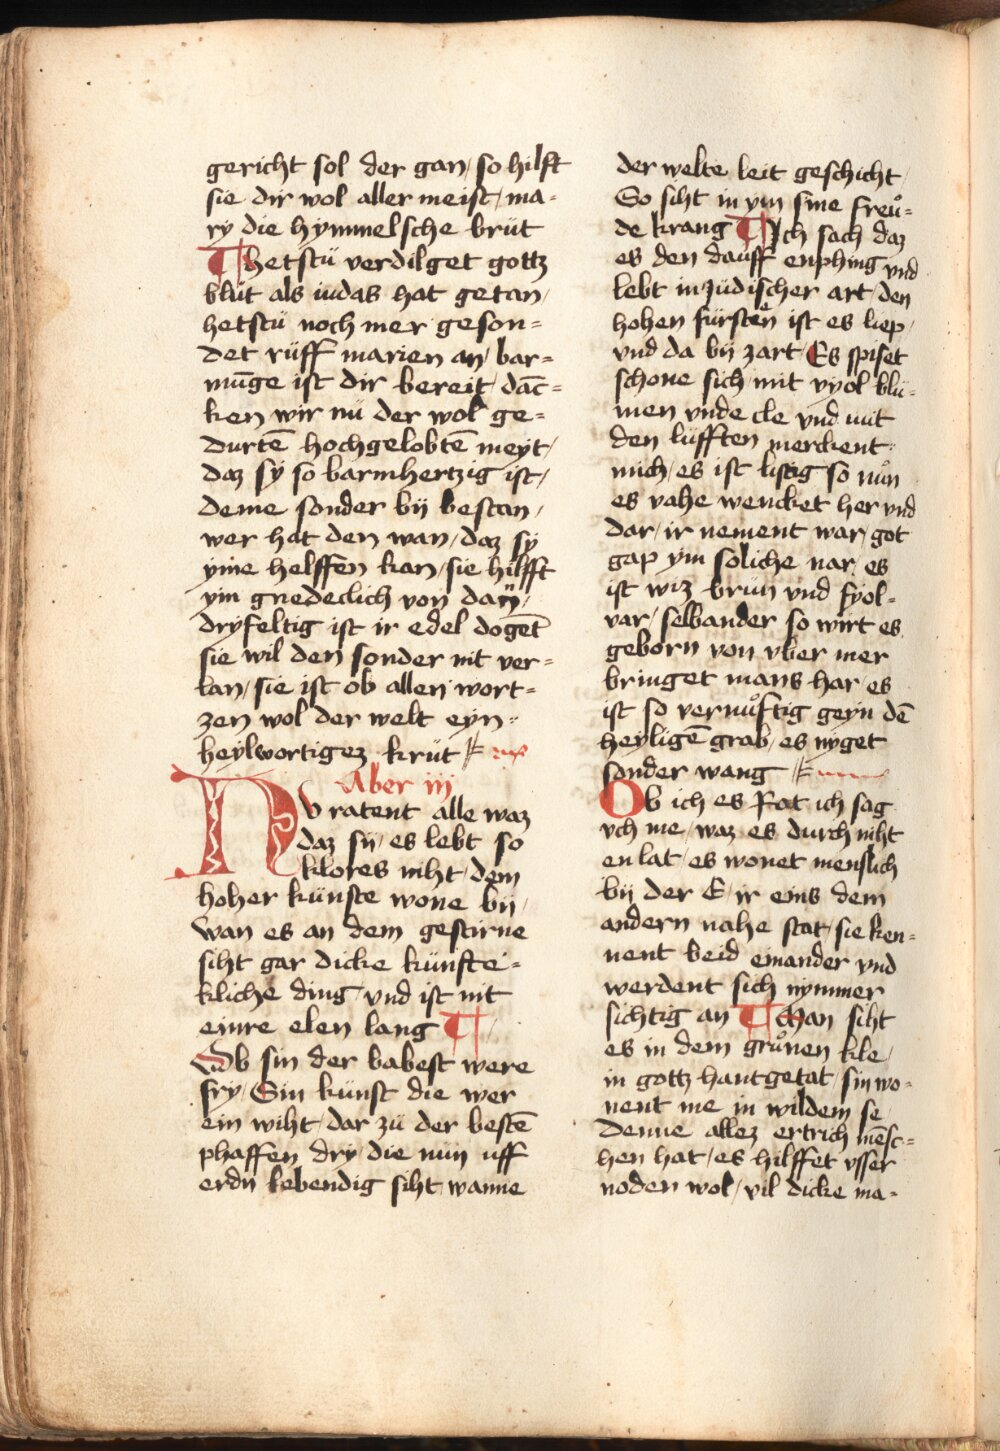 gericht sol der gan / so hilft
sie dir wol aller meist / ma-
ry die hymmelsche brüt
Hetstü verdilget gottz
blüt als iudas hat getan /
hetstü noch mer geson=
det rüff marien an / bar=
mūge ist dir bereit / dāc=
ken wir nü der wol ge=
burtē hochgelobtē meyt /
daz sÿ so barmhertzig ist /
deme sonder bÿ bestan /
wer hat den wan / daz sÿ
yme helffen kan / sie hilfft
ym gnedeclich von dañ /
dryfeltig ist ir edel dogēt
sie wil den sonder nit ver=
lan / sie ist ob allen wort=
zen wol der welt eyn=
heylwortigez krüt
Aber iij
NV ratent alle waz
daz sÿ / es lebt so
klores niht / dem
hoher künste wone bÿ /
wan es an dem gestirne
siht gar dicke künste=
kliche ding / vnd ist nit
einre elen lang
Ob sin der babest were
fry / Sin künst die wer
ein wiht / dar zü der bestē
phaffen dry / die nün uff
erdn lebendig siht wanne
der welte leit geschicht /
So siht in ym sine freuͦ=
de krang Ich sach daz
es den dauff enphing vnd
lebt in Jüdischer art / den
hohen fürsten ist es liep /
vnd da bÿ zart / Es spiset
schone sich mit vyol blü=
men vnde cle vnd mit
den lüfften merckent
mich / es ist listig so nuͦn
es vahe wencket her vnd
dar / ir nement war / got
gap ym soliche nar / es
ist wiz brün vnd fyol=
var / selbander so wirt es
geborn von vber mer
bringet mans har / es
ist so vernuͦftig geyn dē
heyligē grab / es nyget
sonder wang
Ob ich es Rat ich sag
vch me / waz es durch niht
en lat / es wonet menslich
bÿ der E / ir eins dem
andern nahe stat / sie ken=
nent beid einander vnd
werdent sich nymmer
sichtig an Man siht
es in dem gruͦnen kle /
in gottz hantgetat / sin wo=
nent me in wildem se
denne allez ertrich mēsc=
hen hat / es hilffet vsser
noden wol / vil dicke ma=